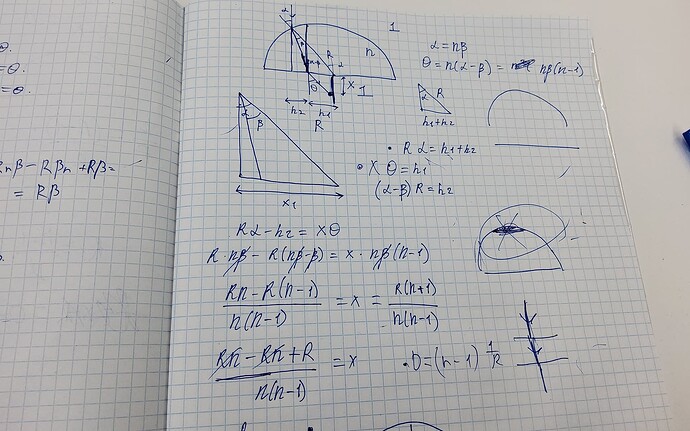 θ.
=θ.
=θ.
nβ − Rβn + Rβ =
= Rβ
1
α
β
R
α
n
θ
x
1
h2
h1
R
α = nβ
θ = n(α−β) = nβ(n−1)
α
R
h1+h2
• Rα = h1+h2
• Xθ = h1
(α−β)R = h2
α
β
x1
Rα − h2 = xθ
R·nβ − R(nβ−β) = x·nβ(n−1)
Rn − R(n−1) / n(n−1) = x = R(n+1) / n(n−1)
Rn − Rn + R / n(n−1) = x
• D = (n−1) 1/R